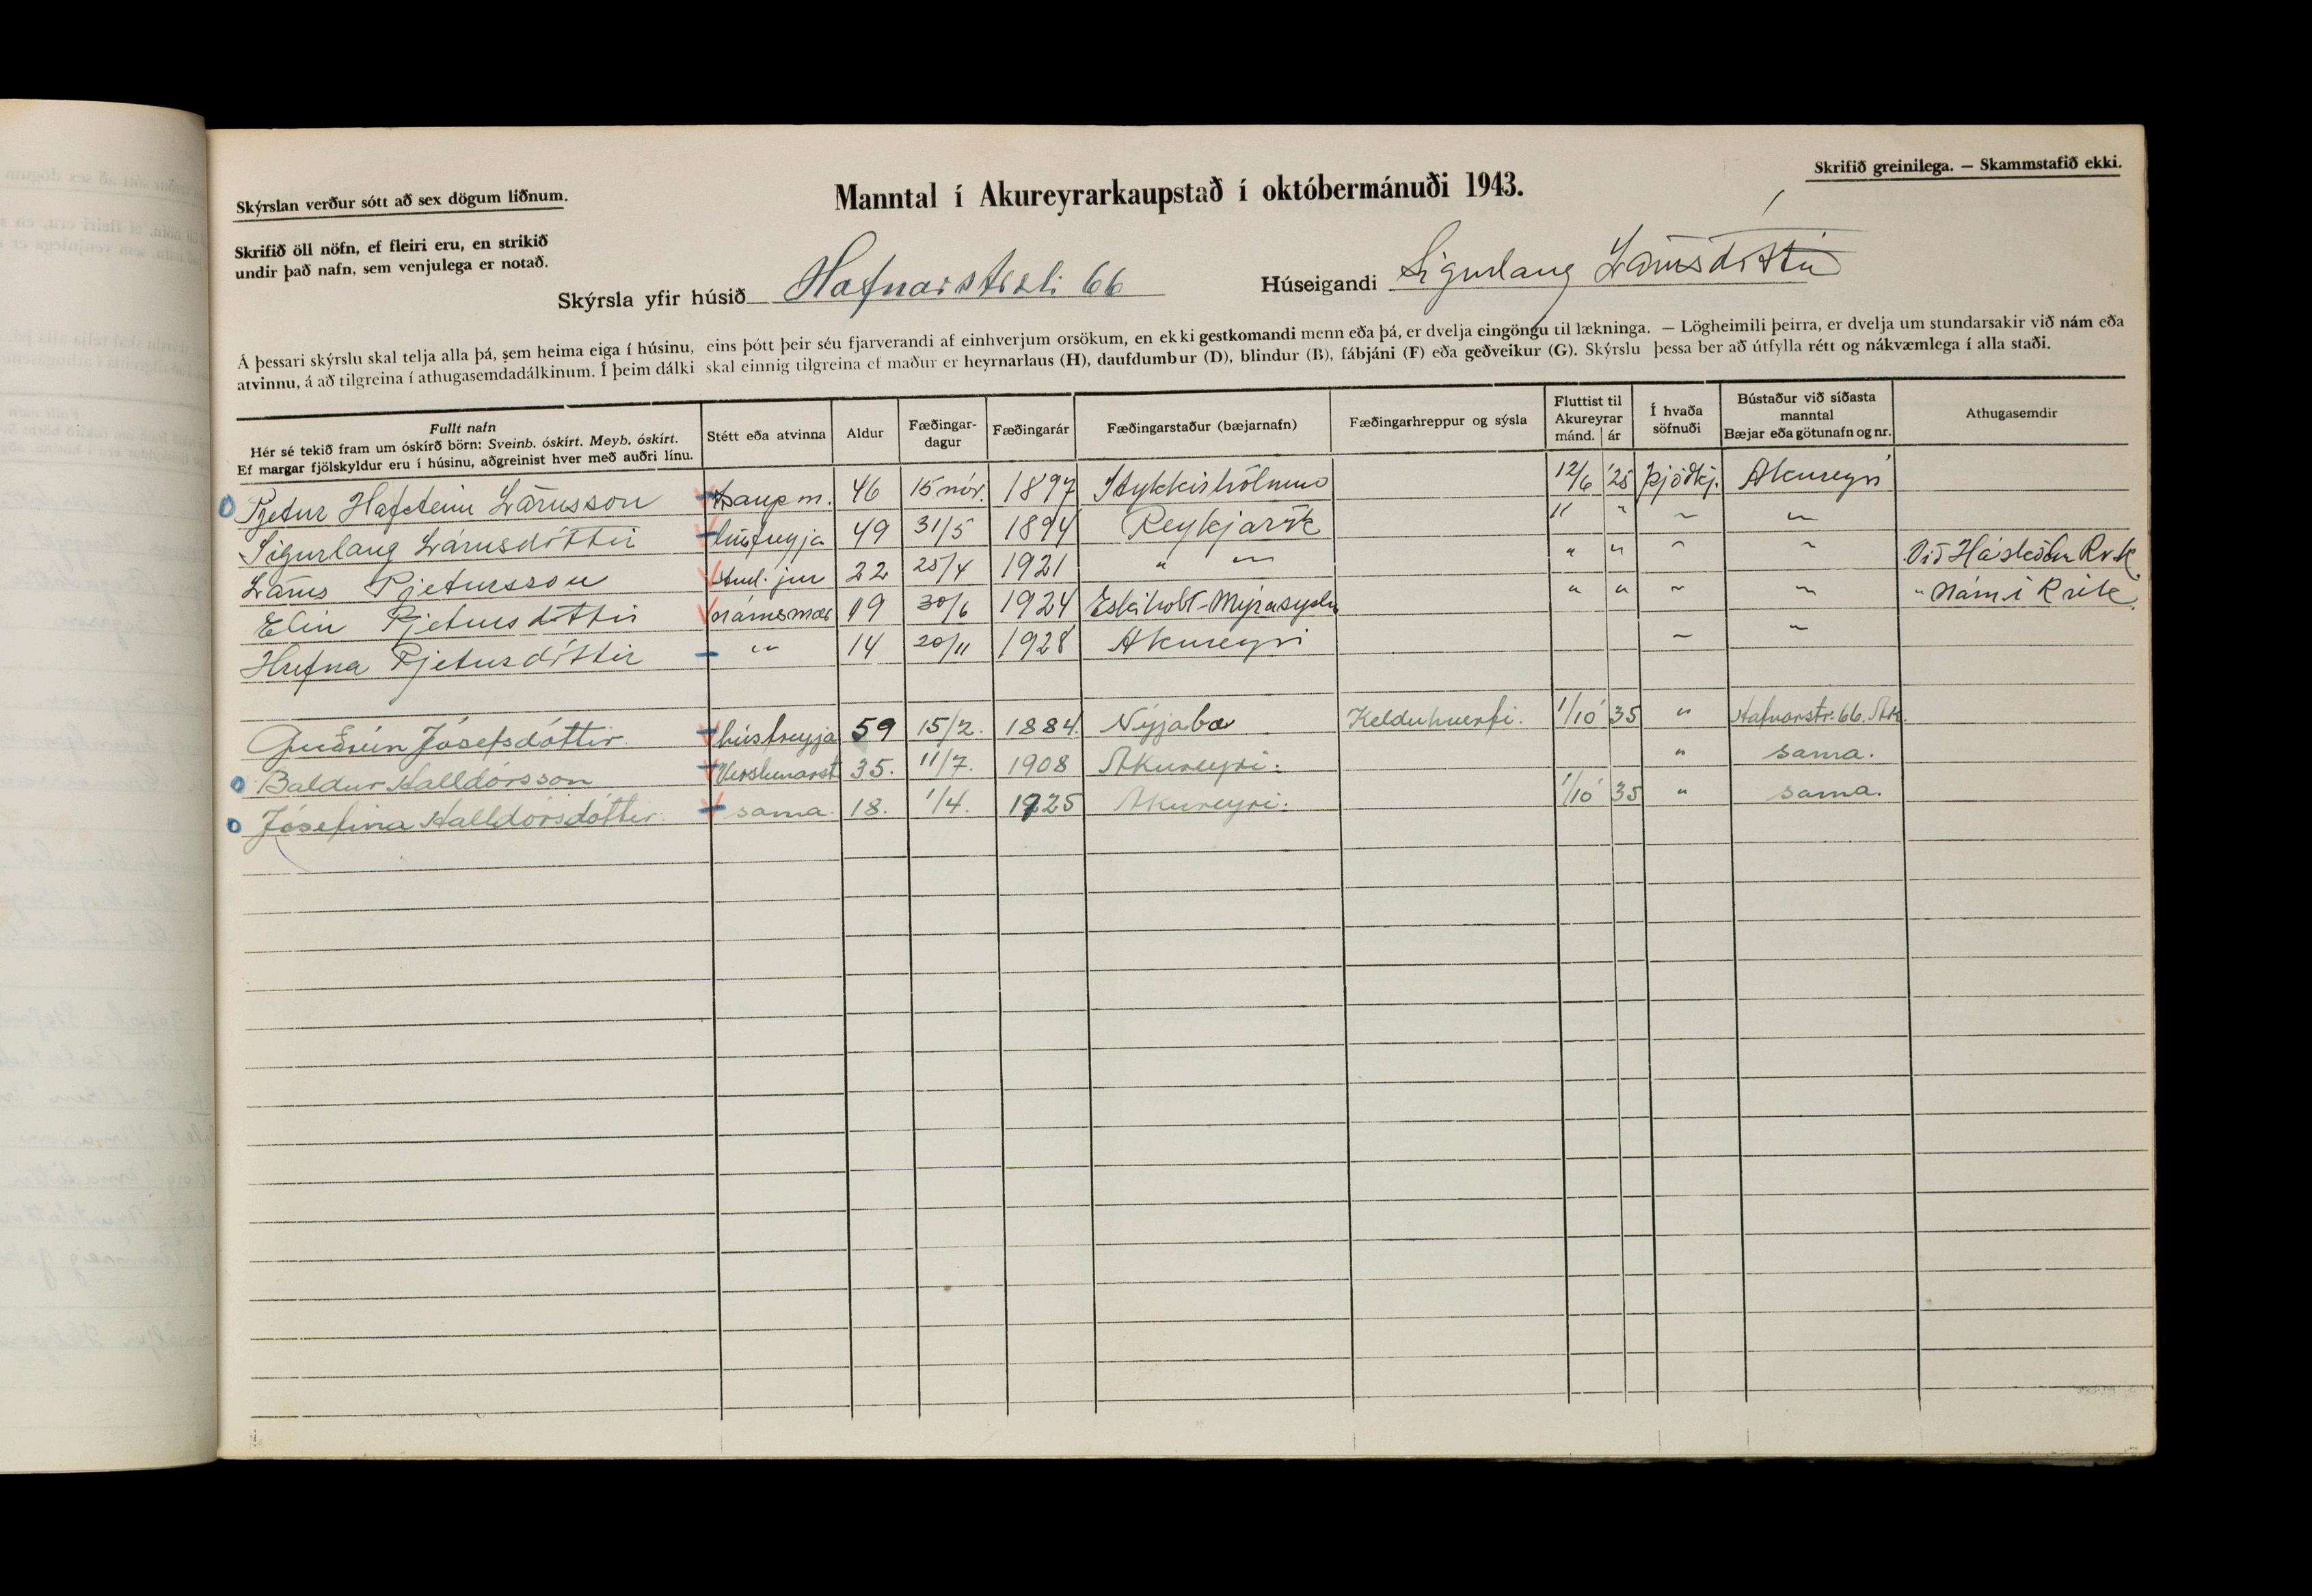 Skrifið greinilega. — Skammstafið ekki.
Skýrslan verður sótt að sex dögum liðnum.
Manntal í Akureyrarkaupstað í októbermánuði 1943.
Skrifið öll nöfn, ef fleiri eru, en strikið
undir það nafn, sem venjulega er notað.
Skýrsla yfir húsið Hafnarstræti 66 Húseigandi Sigurlaug Lárusdóttir
Á þessari skýrslu skal telja alla þá, sem heima eiga í húsinu, eins þótt þeir séu fjarverandi af einhverjum orsökum, en ekki gestkomandi menn eða þá, er dvelja eingöngu til lækninga. — Lögheimili þeirra, er dvelja um stundarsakir við nám eða
atvinnu, á að tilgreina í athugasemdadálkinum. Í þeim dálki skal einnig tilgreina ef maður er heyrnarlaus (H), daufdumbur (D), blindur (B), fábjáni (F) eða geðveikur (G). Skýrslu þessa ber að útfylla rétt og nákvæmlega í alla staði.
Fullt nafn
Hér sé tekið fram um óskírð börn: Sveinb. óskírt. Meyb. óskírt.
Ef margar fjölskyldur eru í húsinu, aðgreinist hver með auðri línu.
Stétt eða atvinna
Aldur
Fæðingar-
dagur
Fæðingarár
Fæðingarstaður (bæjarnafn)
Fæðingarhreppur og sýsla
Fluttist til
Akureyrar
mánd. ár
Í hvaða
söfnuði
Bústaður við síðasta
manntal
Bæjar eða götunafn og nr.
Athugasemdir
Pjetur Hafstein Lárusson kaupm. 46 15 nóv. 1897 Stykkishólmur 12/6 '28 þjóðkj. Akureyri
Sigurlaug Lárusdóttir húsfreyja 49 31/5 1894 Reykjavík " " " "
Lárus Pjetursson stud. jur 22 25/4 1921 " " " " " " Við Háskólan Rvk.
Elin Pjetursdóttir námsmær 19 30/6 1924 Eskiholt-Mýrasýslu " " " " " Nám í Rvík.
Hrefna Pjetursdóttir " 14 20/11 1928 Akureyri " "
Guðrún Jósefsdóttir. húsfreyja 59 15/2. 1884. Nýjabæ Kelduhverfi. 1/10 35 " Hafnarstr. 66. Ak.
Baldur Halldórsson Verslunarst 35. 11/7. 1908 Akureyri. " sama.
Jósefina Halldórsdóttir. sama. 18. 1/4. 1925 Akureyri. 1/10 35 " sama.